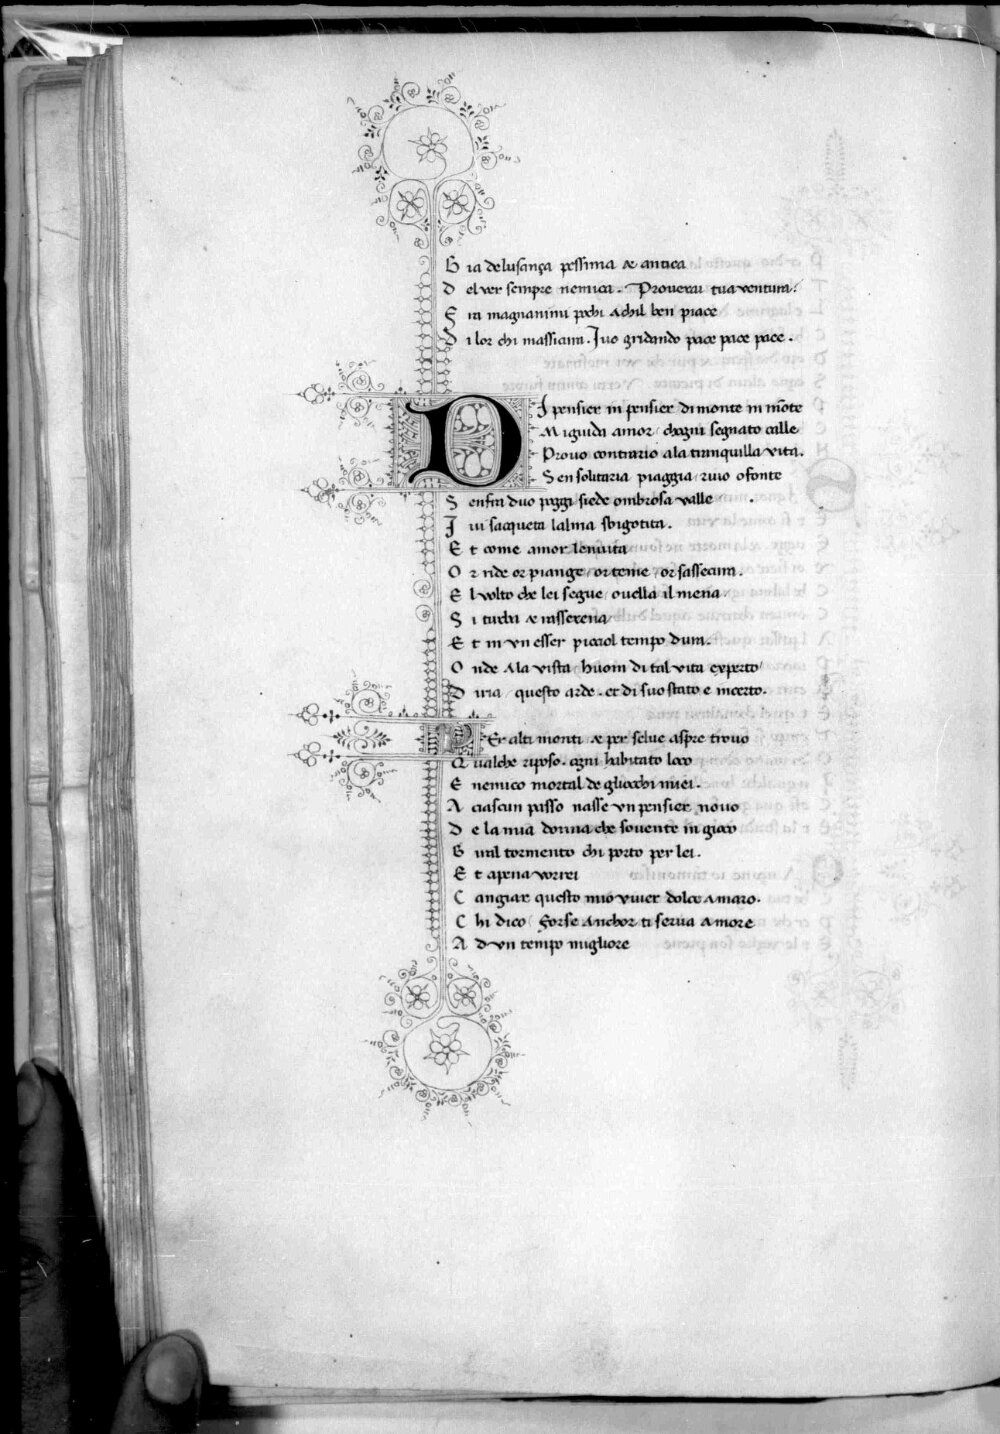 G ia delusança pessima æ antica
D el ver sempre nemica. Prouerai tua ventura.
F ra magnanimi pochi achil ben piace
D i lor chi massicura. Juo gridando pace pace pace.
D J pensier in pensier di monte in mōte
M i guida amor chogni segnato calle
Prouo contrario a la tranquilla vita.
S en solitaria piaggia riuo o fonte
S enfra duo poggi siede ombrosa valle
J ui sacqueta lalma sbigotita.
E t come amor lenuita
O r ride or piange or teme or sassecura.
E l volto che lei segue ouella il mena
S i turba æ rasserena
E t in vn esser picciol tempo dura.
O nde ala vista huom di tal vita experto
D iria questo arde. et di suo stato e incerto.
P Er alti monti æ per selue aspre trouo
Q ualche riposo. ogni habitato loco
E nemico mortal de gliocchi miei.
A ciascun passo nasse vn pensier nouo
D e la mia donna che souente in gioco
G iral tormento chi porto per lei.
E t apena vorrei
C angiar questo mio viuer dolce amaro.
C hi dico forse anchor ti serua amore
A d vn tempo migliore